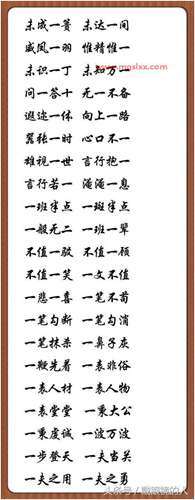 未成一篑 未达一间
威凤一羽 惟精惟一
未识一丁 未知万一
www.mgslxx.com
问一答十 无一不备
遐迩一体 向上一路
嚣张一时 心口不一
雄视一世 言行抱一
言行若一 淹淹一息
一班半点 一斑半点
一般无二 一班一辈
不值一驳 不值一顾
不值一笑 一文不值
一悲一喜 一笔不苟
一笔勾断 一笔勾消
一笔抹杀 一鼻子灰
一鞭先着 一表非俗
一表人材 一表人物
一表堂堂 一秉大公
一秉虔诚 一波万波
一步登天 一夫当关
一夫之用 一夫之勇